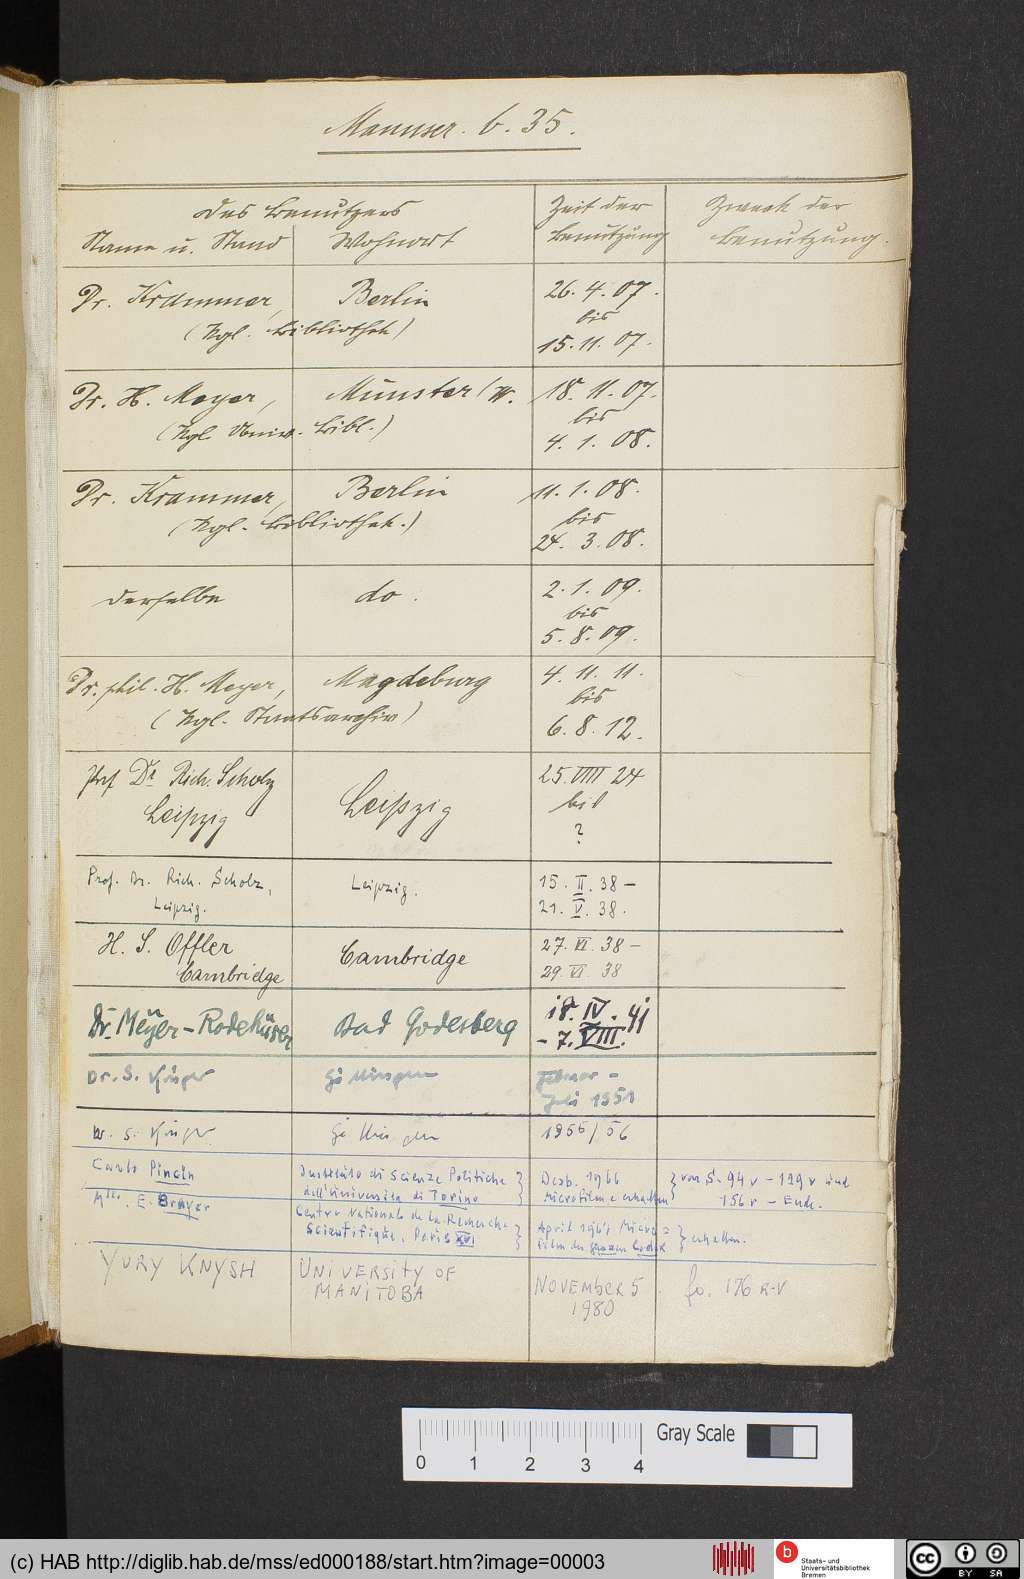 Manuscr. b. 35.
Des Benutzers
Zeit der
Zweck der
Name u. Stand
Wohnort
Benutzung
Benutzung.
Dr. Krammer,
Berlin
26. 4. 07.
(Kgl. Bibliothek)
bis
15. 11. 07.
Dr. H. Meyer,
Münster / W.
18. 11. 07.
(Kgl. Univ. Bibl.)
bis
4. 1. 08.
Dr. Krammer,
Berlin
11. 1. 08.
(Kgl. Bibliothek.)
bis
24. 3. 08.
derselbe
do.
2. 1. 09.
bis
5. 8. 09.
Dr. phil. H. Meyer,
Magdeburg
4. 11. 11.
(Kgl. Staatsarchiv)
bis
6. 8. 12.
Prof Dr Rich. Scholz
Leipzig
Leipzig
25. VIIII 24
bis
?
Prof. Dr. Rich. Scholz,
Leipzig.
Leipzig.
15. II. 38 –
21. V. 38.
H. S. Offler
Cambridge
Cambridge
27. VI. 38 –
29. VI. 38
Dr. Meyer-Rodehüser
Bad Godesberg
18. IV. 41
– 7. VIII.
Dr. S. Krüger
Göttingen
Februar –
Juli 1951
Dr. S. Krüger
Göttingen
1955/56
Carlo Pincin
Instituto di Scienze Politiche
dell'Università di Torino
Dezb. 1966
Microfilme erhalten
von S. 94 v – 129 v und
156 r – Ende.
Mlle. E. Brayer
Centre National de la Recherche
Scientifique, Paris XVI
April 1967 Micro=
film des ganzen Codex
erhalten.
YURY KNYSH
UNIVERSITY OF
MANITOBA
NOVEMBER 5
1980
fo. 176 R-V
0 1 2 3 4
Gray Scale
(c) HAB http://diglib.hab.de/mss/ed000188/start.htm?image=00003
Staats- und
Universitätsbibliothek
Bremen
cc BY SA